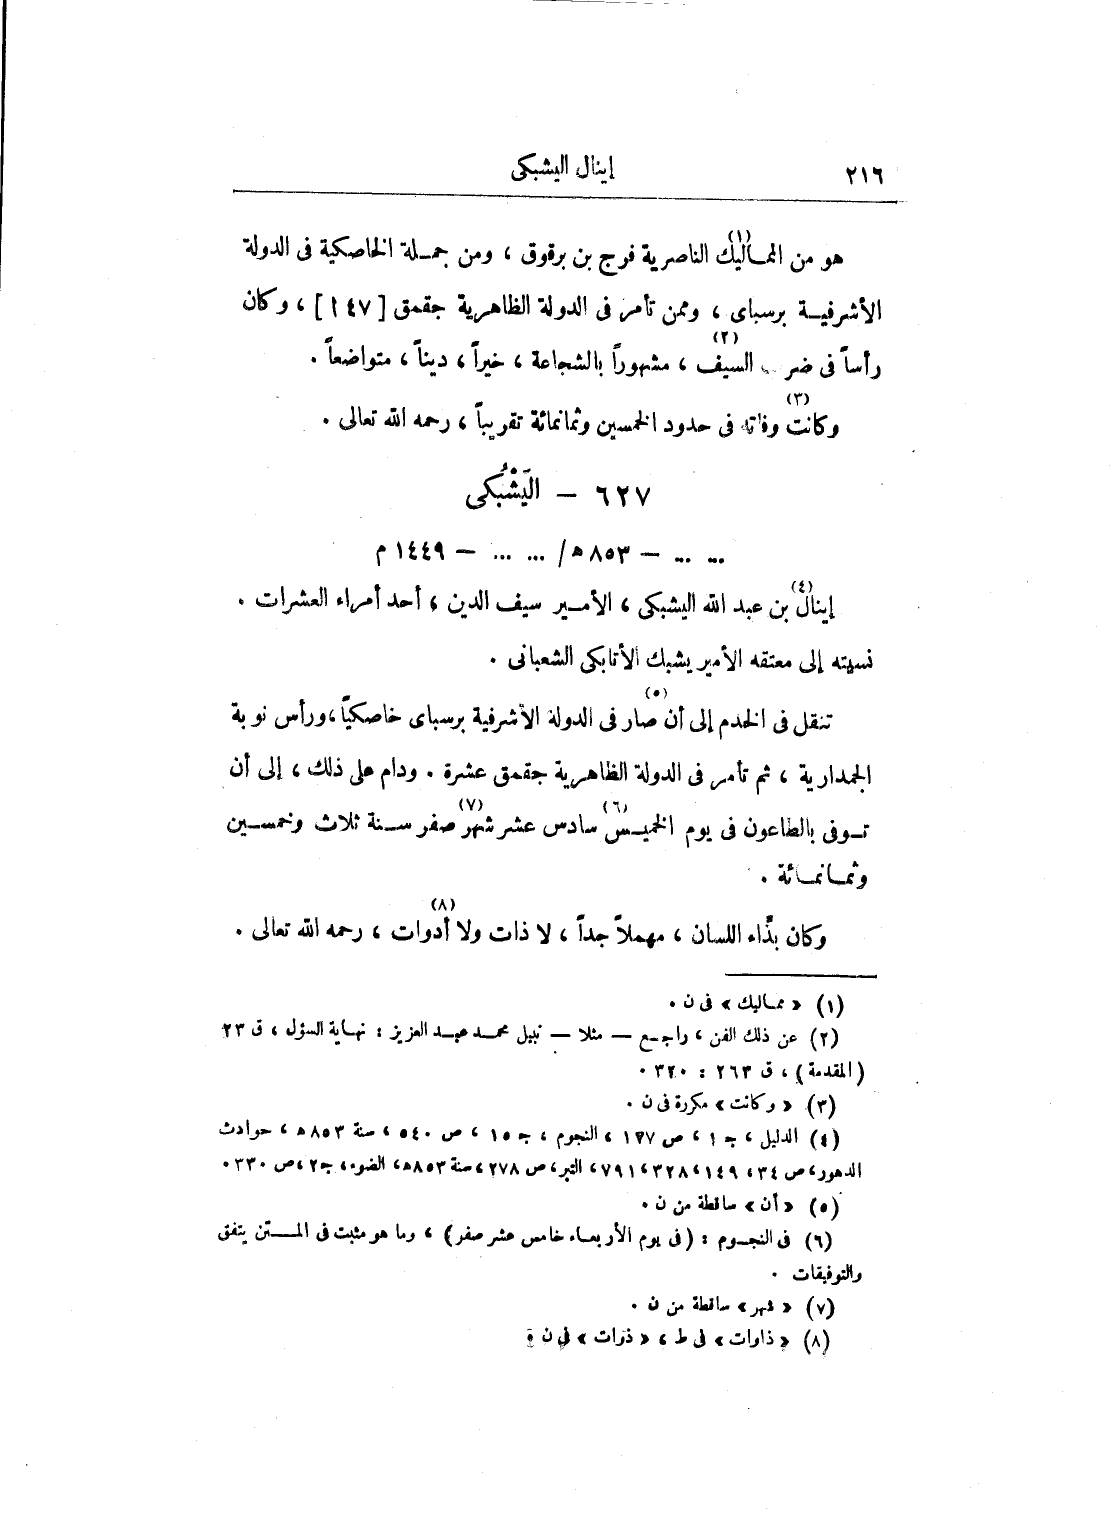 ٢١٦
إينال اليشبكى
هو من الممـاليك(١) الناصرية فرج بن برقوق ، ومن جمـلة الخاصكية فى الدولة
الأشرفيـة برسباى ، وممن تأمر فى الدولة الظاهرية جقمق [ ١٤٧ ] ، وكان
رأساً فى ضرب السيف(٢) ، مشهوراً بالشجاعة ، خيراً ، ديناً ، متواضعاً .
وكانت(٣) وفاته فى حدود الخمسين وثمانمائة تقريباً ، رحمه الله تعالى .
٦٢٧ – اليَشْبُكى
... ... – ٨٥٣ ه/ ... ... – ١٤٤٩ م
إينال(٤) بن عبد الله اليشبكى ، الأمـير سيف الدين ، أحد أمراء العشرات .
نسبته إلى معتقه الأمير يشبك الأتابكى الشعبانى .
تنقل فى الخدم إلى أن(٥) صار فى الدولة الأشرفية برسباى خاصكيّا ، ورأس نوبة
الجمدارية ، ثم تأمر فى الدولة الظاهرية جقمق عشرة . ودام على ذلك ، إلى أن
تـوفى بالطاعون فى يوم الخميـس(٦) سادس عشر شهر(٧) صفر سـنة ثلاث وخمسـين
وثمـانمـائة .
وكان بذّاء اللسان ، مهملاً جداً ، لا ذات ولا أدوات(٨) ، رحمه الله تعالى .
(١) « ممـاليك » فى ن .
(٢) عن ذلك الفن ، راجـع — مثلا — نبيل محمـد عبـد العزيز : نهـاية السؤل ، ق ٢٣
(المقدمة) ، ق ٢٦٣ : ٣٢٠ .
(٣) « وكانت » مكررة فى ن .
(٤) الدليل ، جـ ١ ، ص ١٧٧ ، النجوم ، جـ ١٥ ، ص ٥٤٠ ، سنة ٨٥٣ ه ، حوادث
الدهور، ص ٣٤، ١٤٩، ٣٢٨، ٧٩١، التبر، ص ٢٧٨ ، سنة ٨٥٣ ه، الضوء، جـ ٢ ، ص ٣٣٠ .
(٥) « أن » ساقطة من ن .
(٦) فى النجـوم : (فى يوم الأربعـاء خامس عشر صفر) ، وما هو مثبت فى المـتن يتفق
والتوفيقات .
(٧) « شهر » ساقطة من ن .
(٨) « ذاوات » فى ط ، « ذوات » فى ن .